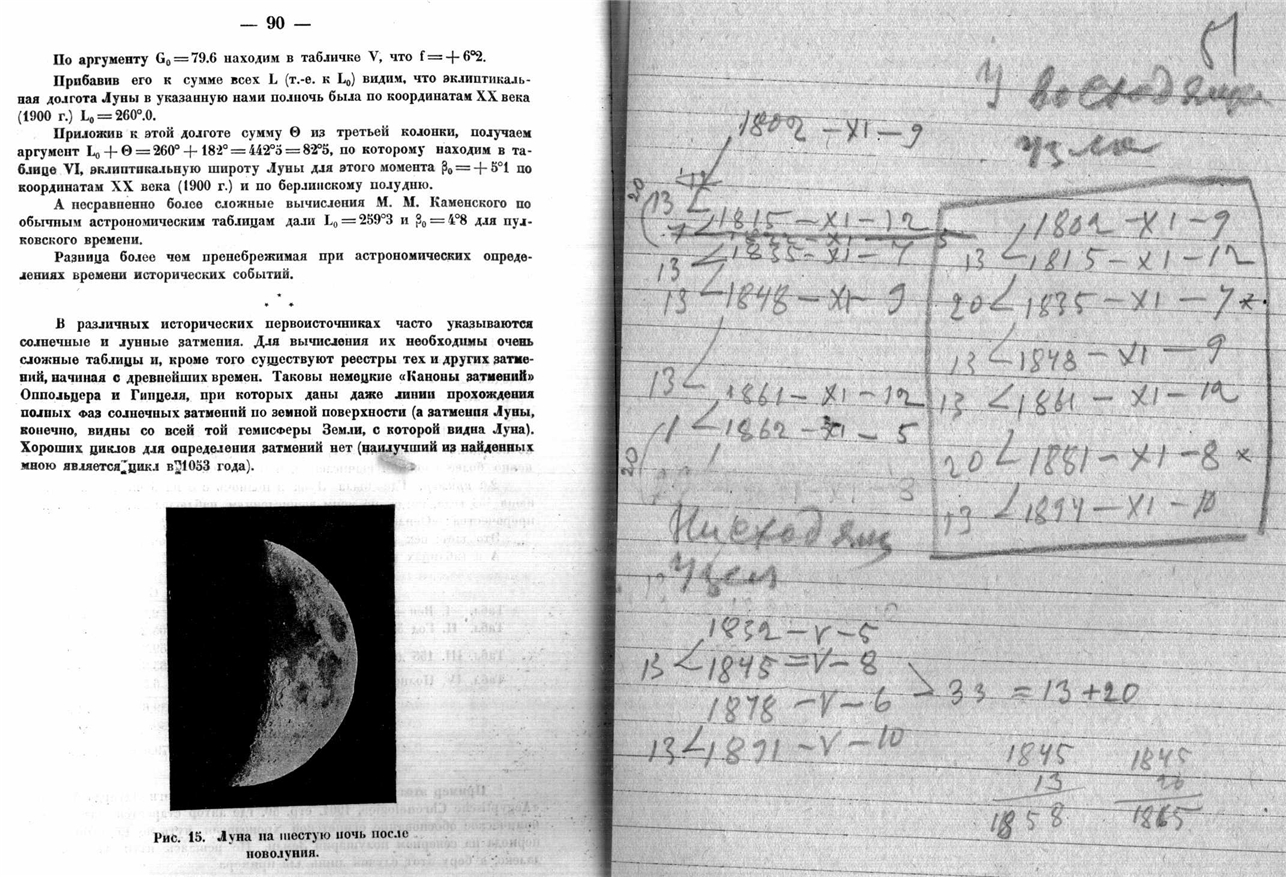 — 90 —
По аргументу G₀ = 79.6 находим в табличке V, что f = + 6°2.
Прибавив его к сумме всех L (т.-е. к L₀) видим, что эклиптикаль-
ная долгота Луны в указанную нами полночь была по координатам XX века
(1900 г.) L₀ = 260°.0.
Приложив к этой долготе сумму Θ из третьей колонки, получаем
аргумент L₀ + Θ = 260° + 182° = 442°5 = 82°5, по которому находим в та-
блице VI, эклиптикальную широту Луны для этого момента β₀ = + 5°1 по
координатам XX века (1900 г.) и по берлинскому полудню.
А несравненно более сложные вычисления М. М. Каменского по
обычным астрономическим таблицам дали L₀ = 259°3 и β₀ = 4°8 для пул-
ковского времени.
Разница более чем пренебрежимая при астрономических опреде-
лениях времени исторических событий.
В различных исторических первоисточниках часто указываются
солнечные и лунные затмения. Для вычисления их необходимы очень
сложные таблицы и, кроме того существуют реестры тех и других затме-
ний, начиная с древнейших времен. Таковы немецкие «Каноны затмений»
Оппольцера и Гинцеля, при которых даны даже линии прохождения
полных фаз солнечных затмений по земной поверхности (а затмения Луны,
конечно, видны со всей той гемисферы Земли, с которой видна Луна).
Хороших циклов для определения затмений нет (наилучший из найденных
мною является цикл в 1053 года).
Рис. 15. Луна на шестую ночь после
новолуния.
51
У восходящего
узла
1802 - XI - 9
20
13 < 1815 - XI - 12
7
13 < 1835 - XI - 7
13 < 1848 - XI - 9
13 < 1861 - XI - 12
1 < 1862 - XI - 5
20
1802 - XI - 9
13 < 1815 - XI - 12
20 < 1835 - XI - 7 *
13 < 1848 - XI - 9
13 < 1861 - XI - 12
20 < 1881 - XI - 8 *
13 < 1894 - XI - 10
Нисходящ
узел
1832 - V - 5
13 < 1845 = V - 8
33 = 13 + 20
1878 - V - 6
13 < 1891 - V - 10
1845 1845
13 20
1858 1865